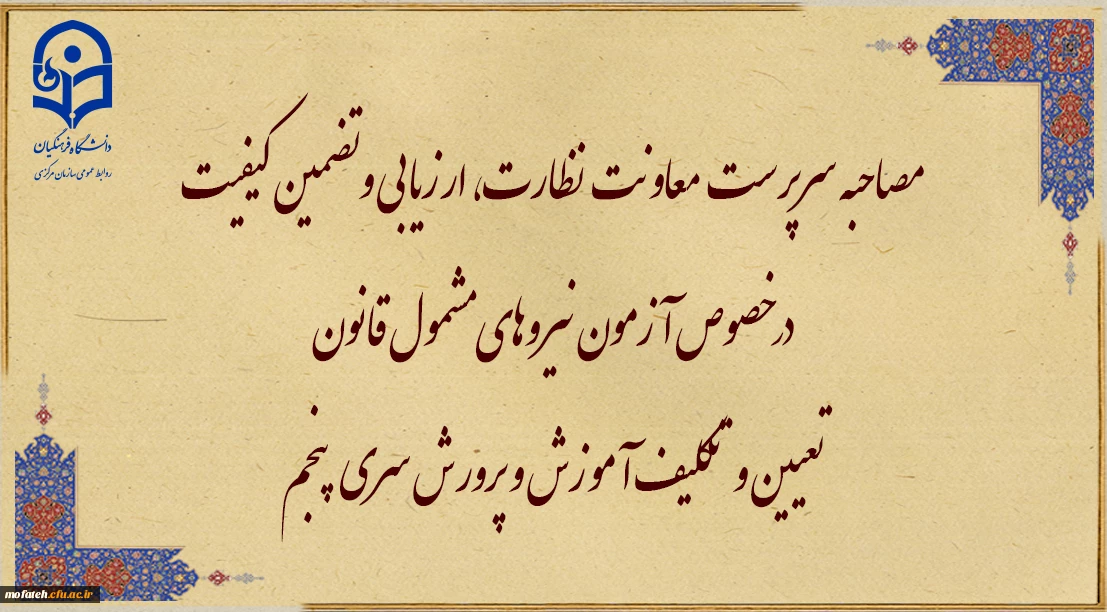 دانشگاه فرهنگیان
روابط عمومی سازمان مرکزی
مصاحبه سرپرست معاونت نظارت، ارزیابی و تضمین کیفیت
در خصوص آزمون نیروهای مشمول قانون
تعیین و تکلیف آموزش و پرورش سری پنجم
mofateh.cfu.ac.ir